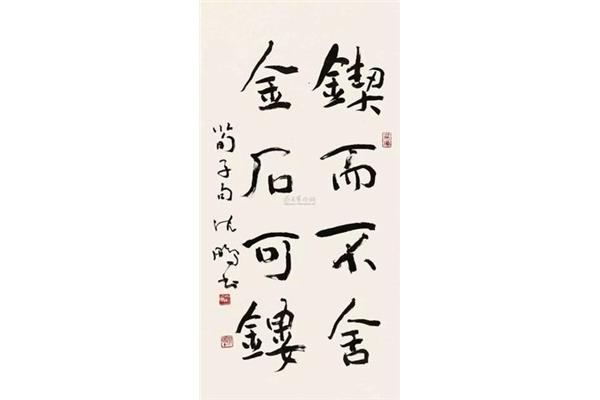 鍥而不舍
金石可鏤
荀子句沈鵬书